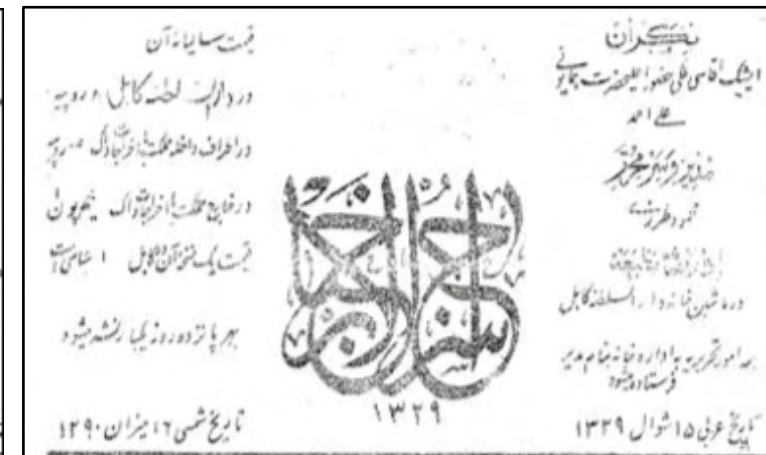 نگران
ایشیک آقاسی ملکی حضور اعلیحضرت همایونی
علی احمد
مدیر و سرمحرر
محمود طرزی
در ماشین خانه دارالسلطنه کابل
همه امور تحریریه به اداره خانه بنام مدیر
فرستاده میشود
تاریخ عربی ۱۵ شوال ۱۳۲۹
سراج الاخبار
۱۳۲۹
قیمت سالیانه آن
در دارالسلطنه کابل روپیه
در اطراف داخله مملکت با اخراجات داک روپیه
در خارج مملکت با اخراجات داک نیم پون
قیمت یک نسخه آن در کابل ۱ عباسی است
بهر پانزده روز یکبار نشر میشود
تاریخ شمسی ۱۶ میزان ۱۲۹۰